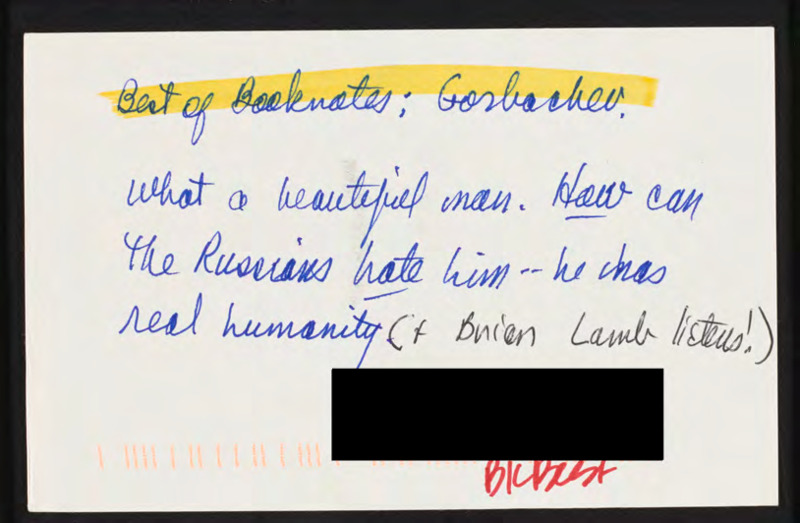 Best of Booknotes: Gorbachev.
What a beautiful man. How can
the Russians hate him -- he has
real humanity (+ Brian Lamb listens!)
BKBest